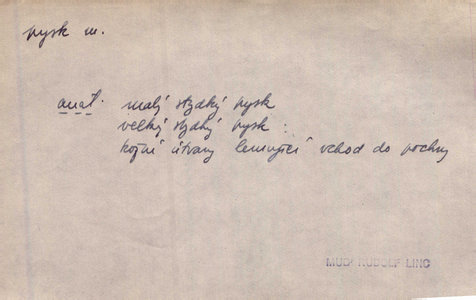 pysk m.
anat. malý stydký pysk
velký stydký pysk :
kožní útvary lemující vchod do pochvy
MUDr RUDOLF LINC